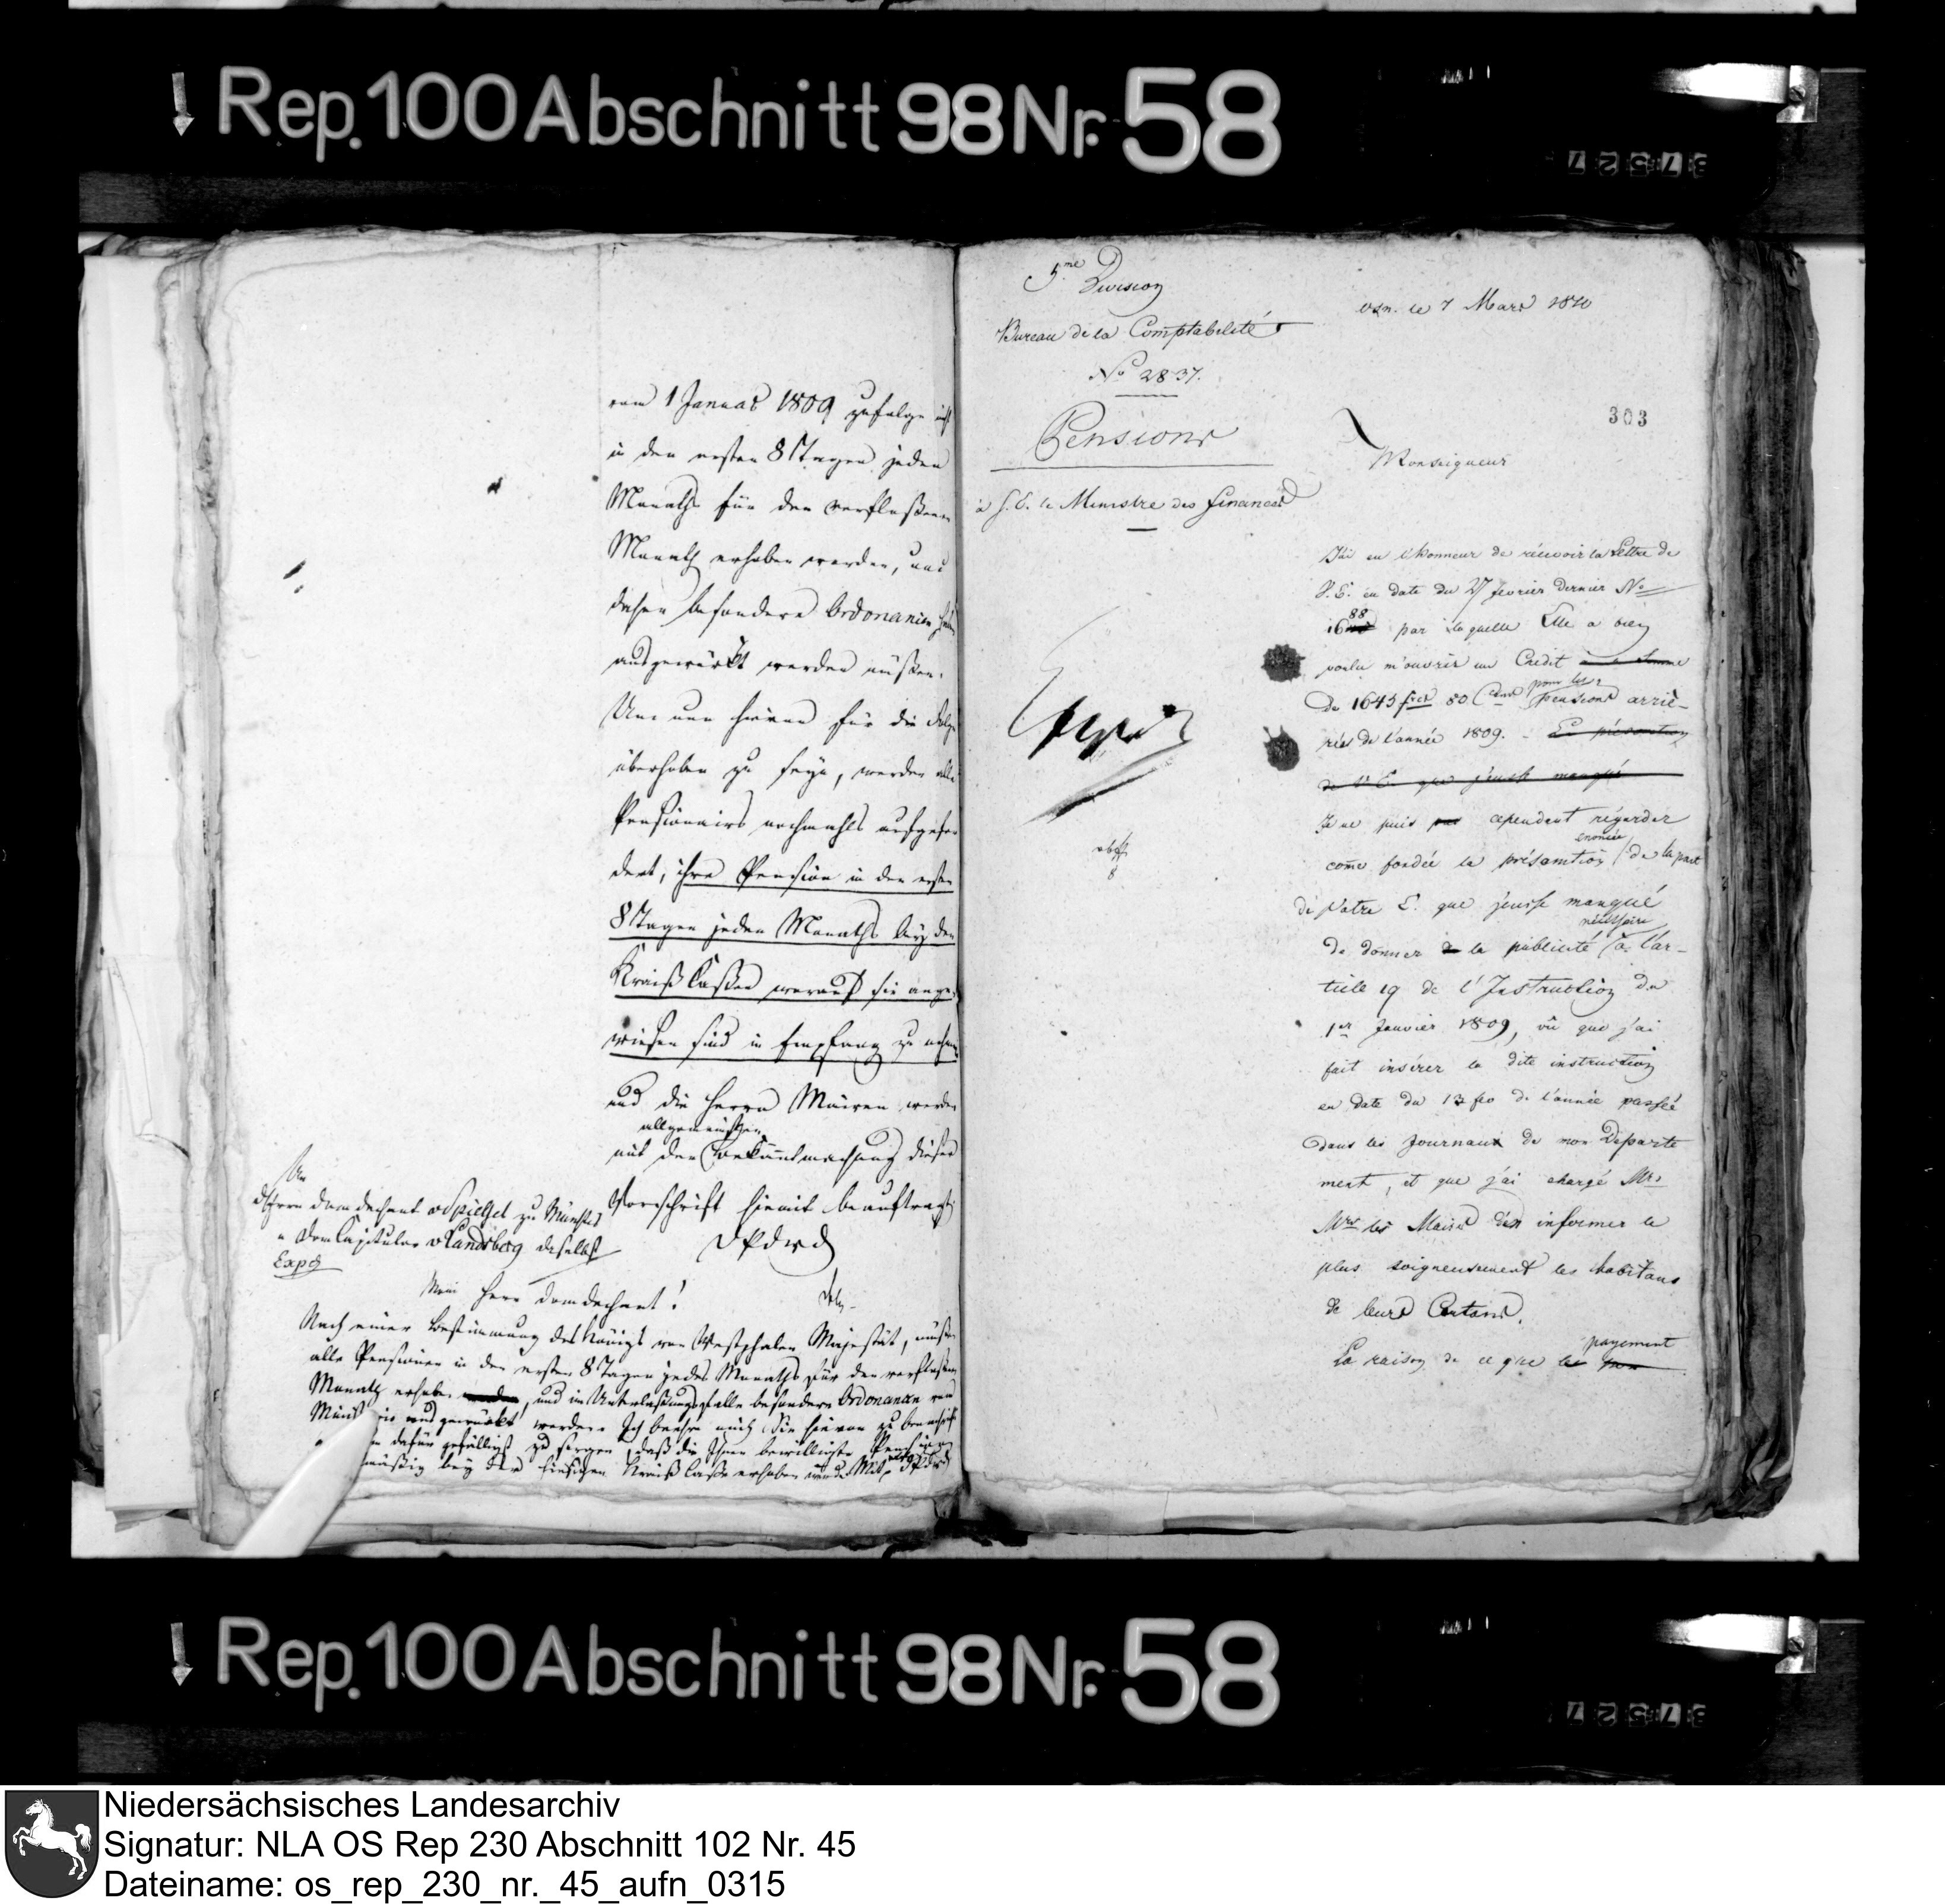 Rep. 100 Abschnitt 98 Nr. 58
vom 1 Januar 1809 zufolge nicht
in den ersten 8 Tagen jeden
Monaths für den verfloßenen
Monath erhoben werden, und
daher besondere Ordonanzen
ausgewürkt werden müßen.
Um nun hievon für die Folge
überhoben zu seyn, werden alle
Pensionairs nochmahls aufgefor
dert, ihre Pension in den ersten
8 Tagen jeden Monaths bey den
Kreiß Caßen worauf sie ange
wiesen sind in Empfang zu nehmen
und die Herrn Mairen werden
allgemeinsten
mit der Bekanntmachung dieser
Vorschrift hiemit beauftragt
An
d Herrn Domdechant v Spiegel zu Münster
" Dom Capitular v Landsberg daselbst
Expd
Mein Herr Domdechant!
Nach einer Bestimmung des Königs von Westphalen Majestät, müßen
alle Pensionen in den ersten 8 Tagen jedes Monaths für den verfloßenen
Monath erhoben, und im Unterlaßungsfalle besondere Ordonanzen vom
ausgewürkt werden. Ich beehre mich Sie hievon zu benachrich
dafür gefälligst zu sorgen, daß die Ihnen bewilligte Pension
mäßig bey der hiesigen Kreiß Caße erhoben werde
5me Division
Bureau de la Comptabilité
No 2837.
Pensions
à S. E. le Ministre des finances
osn. le 7 Mars 1810
303
Monseigneur
J'ai eu l'honneur de recevoir la Lettre de
V. E. en date du 27 fevrier dernier No
1688 par laquelle Elle a bien
voulu m'ouvrir un Credit a la somme
pour les
de 1645 frcs 80 Cent pensions arrié-
rées de l'année 1809. - La présomtion
de V. E. que j'eusse manqué
Je ne puis pas cependant régarder
enoncée
come fondée la présomtion de la part
de Votre E. que j'eusse manqué
nécessaire
de donner la publicité à l'ar-
ticle 19 de l'Instruction du
1er Janvier 1809, vû que j'ai
fait insérer la dite instruction
en date du 13 fro de l'année passée
dans les Journaux de mon Departe
ment, et que j'ai chargé Mrs
Mrs les Maires d'en informer le
plus soigneusement les habitans
de leurs Cantons.
payement
La raison de ce que le
Rep. 100 Abschnitt 98 Nr. 58
Niedersächsisches Landesarchiv
Signatur: NLA OS Rep 230 Abschnitt 102 Nr. 45
Dateiname: os_rep_230_nr._45_aufn_0315